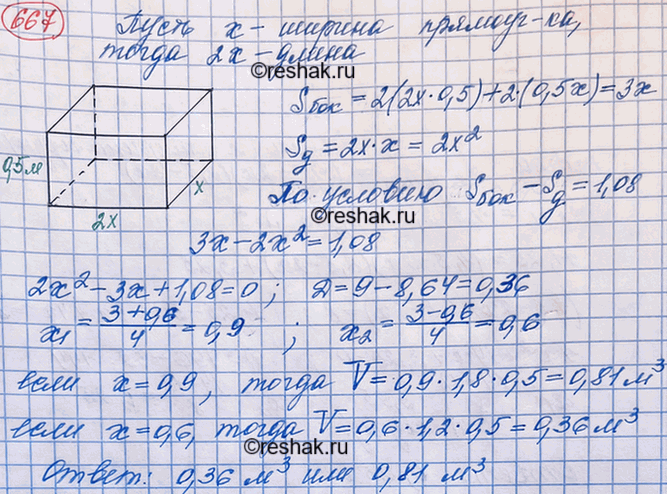 667
Пусть x - ширина прямоуг-ка,
тогда 2x - длина
©reshak.ru
Sбок = 2(2x·0,5)+2·(0,5x)=3x
Sд = 2x·x = 2x²
0,5м
x
2x
По условию Sбок - Sд = 1,08
©reshak.ru
3x-2x²=1,08
2x²-3x+1,08=0; D=9-8,64=0,36
x₁ = (3+0,6)/4 = 0,9 ; x₂ = (3-0,6)/4 = 0,6
©reshak.ru
если x=0,9, тогда V=0,9·1,8·0,5=0,81 м³
если x=0,6, тогда V=0,6·1,2·0,5=0,36 м³
Ответ: 0,36 м³ или 0,81 м³
©reshak.ru